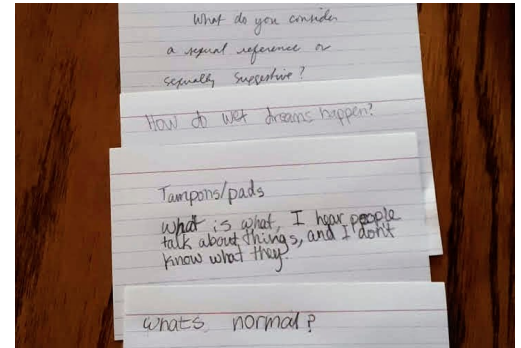 What do you consider
a sexual reference or
sexually suggestive?
How do wet dreams happen?
Tampons/pads
what is what, I hear people
talk about things, and I don't
know what they
whats normal?